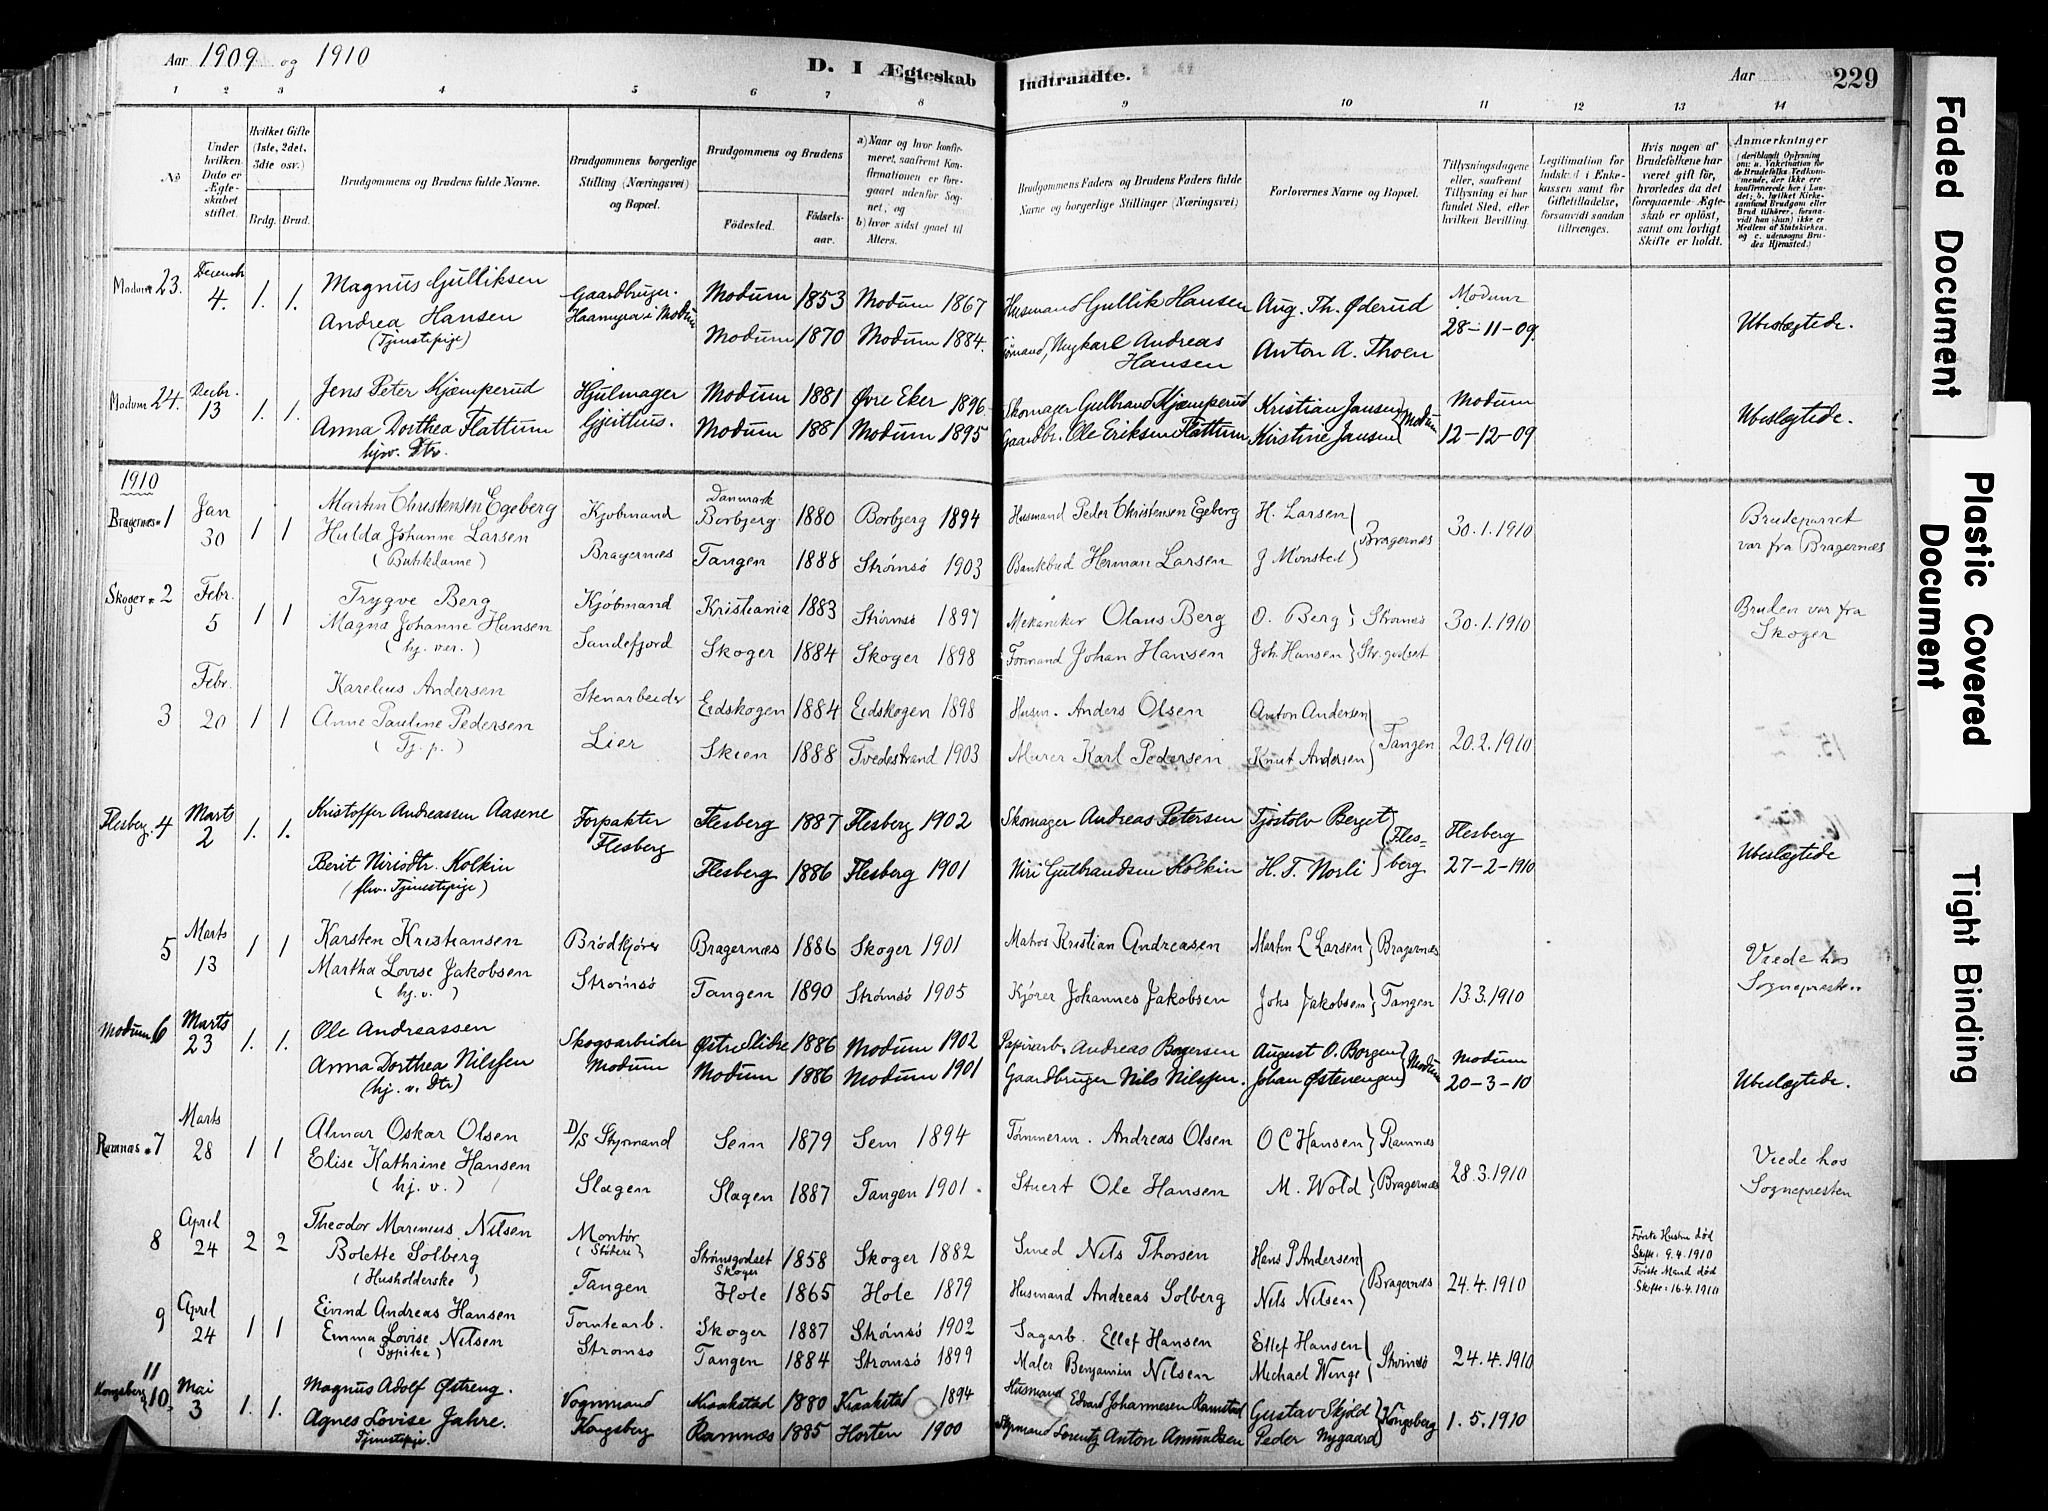 Aar 1909 og 1910
D. I Ægteskab Indtraadte.
Aar 229
1 2 3 4 5 6 7 8 9 10 11 12 13 14
No
Under hvilken Dato er Ægteskabet stiftet.
Hvilket Gifte (1ste, 2det, 3die osv.)
Brdg. Brud.
Brudgommens og Brudens fulde Navne.
Brudgommens borgerlige Stilling (Næringsvei) og Bopæl.
Brudgommens og Brudens
Fødested. Fødselsaar.
a) Naar og hvor konfirmeret, saafremt Konfirmationen er foregaaet udenfor Sognet, og b) hvor sidst gaaet til Alters.
Brudgommens Faders og Brudens Faders fulde Navne og borgerlige Stillinger (Næringsvei)
Forlovernes Navne og Bopæl.
Tillysningsdagene eller, saafremt Tillysning ei har fundet Sted, efter hvilken Bevilling.
Legitimation for Indskud i Enkekassen samt for Giftetilladelse, forsaavidt saadan tiltrænges.
Hvis nogen af Brudefolkene har været gift før, hvorledes da det foregaaende Ægteskab er opløst, samt om lovligt Skifte er holdt.
Anmærkninger
Modum 23. Decemb 4. 1. 1. Magnus Gulliksen Gaardbruger. Modum 1853 Modum 1867 Husmand Gullik Hansen Aug. Th. Øderud Modum
Andrea Hansen Haamyra i Modum Modum 1870 Modum 1884. Ungkarl Andreas Hansen Anton A. Thoen 28-11-09. Ubeslægtede.
(Tjenstepige)
Modum 24. Decbr. 13 1. 1. Jens Peter Kjæmperud Hjulmager Modum 1881 Øvre Eker 1896 Skomager Gulbrand Kjæmperud Kristian Jansen Modum Modum
Anna Dorthea Flattum Gjethus. Modum 1881 Modum 1895 Gaardbr. Ole Eriksen Flattum Kristine Jansen 12-12-09 Ubeslægtede.
hjv. Dtr.
1910
Bragernes 1 Jan 30 1 1 Martin Christensen Egeberg Kjøbmand Danmark Borbjerg 1880 Borbjerg 1894 Husmand Peder Christensen Egeberg H. Larsen Bragernes 30.1.1910 Brudeparret
Hulda Johanne Larsen Bragernæs Tangen 1888 Strømsø 1903 Bankbud Herman Larsen J Mønsted var fra Bragernæs
(Butikdame)
Skoger 2 Febr. 5 1 1 Trygve Berg Kjøbmand Kristiania 1883 Strømsø 1897 Mekaniker Olaus Berg O. Berg 30.1.1910 Bruden var fra
Magna Johanne Hansen Sandefjord Skoger 1884 Skoger 1898 Formand Johan Hansen Joh. Hansen Str.godset Skoger
(hj. vær.)
3 Febr. 20 1 1 Karelius Andersen Stenarbeider Eidskogen 1884 Eidskogen 1898 Husm. Anders Olsen Anton Andersen Tangen 20.2.1910
Anne Pauline Pedersen Lier Skien 1888 Tvedestrand 1903 Murer Karl Pedersen Knut Andersen
(Tj. p.)
Flesberg. 4 Marts 2 1. 1. Kristoffer Andreassen Aasene Forpakter Flesberg Flesberg 1887 Flesberg 1902 Skomager Andreas Petersen Tjøstolv Berget Flesberg Flesberg
Berit Nirisdtr. Kolkin Flesberg 1886 Flesberg 1901 Niri Gulbrandsen Kolkin H. T. Norli 27-2-1910 Ubeslægtede
(fhv. Tjenestepige)
5 Marts 13 1 1 Karsten Kristiansen Brødkjører Bragernæs 1886 Skoger 1901 Matros Kristian Andreasen Martin L Larsen Bragernæs Viede hos
Martha Lovise Jakobsen Strømsø Tangen 1890 Strømsø 1905 Kjører Johannes Jakobsen Johs Jakobsen Tangen 13.3.1910 Sognepresten
(hj. v.)
Modum 6 Marts 23 1. 1. Ole Andreassen Skogsarbeider Østre Slidre 1886 Modum 1902 Papirarb. Andreas Borgersen August O. Borgen Modum Modum
Anna Dorthea Nilssen Modum Modum 1886 Modum 1901 Gaardbruger Nils Nilssen. Johan Østenengen 20-3-10 Ubeslægtede.
(hj. v. Dtr)
Ramnæs 7 Marts 28 1 1 Almar Oskar Olsen D/S Styrmand Sem 1879 Sem 1894 Tømmerm. Andreas Olsen O C Hansen Ramnæs Viede hos
Elise Kathrine Hansen Slagen Slagen 1887 Tangen 1901. Stuert Ole Hansen M. Wold Bragernæs 28.3.1910 Sognepresten
(hj. v.)
8 April 24 2 2 Theodor Marinius Nilsen Montør (Støberi) Strømsgodset Skoger 1858 Skoger 1882 Smed Nils Thorsen Hans P Andersen Bragernæs 24.4.1910 Første Hustru død Skifte: 9.4.1910
Bolette Solberg Tangen Hole 1865 Hole 1879 Husmand Andreas Solberg Nils Nilsen Første Mand død Skifte: 16.4.1910
(Husholderske)
9 April 24 1 1 Eivind Andreas Hansen Tomtearb. Skoger 1887 Strømsø 1902 Sagarb. Ellef Hansen Ellef Hansen Strømsø 24.4.1910
Emma Lovise Nilsen Strømsø Tangen 1884 Strømsø 1899 Maler Benjamin Nilsen Michael Winge
(Sypike)
11
Kongsberg 10. Mai 3 1. 1. Magnus Adolf Østreng. Vognmand Kraakstad 1880 Kraakstad 1894 Husmand Edvard Johannesen Ramstad Gustav Skjöld Kongsberg 1.5.1910
Agnes Lovise Jahre. Kongsberg Ramnæs 1885 Horten 1900 Styrmand Lorentz Anton Amundsen Peder Nygaard
Tjenestepige.
Faded Document
Plastic Covered Document
Tight Binding